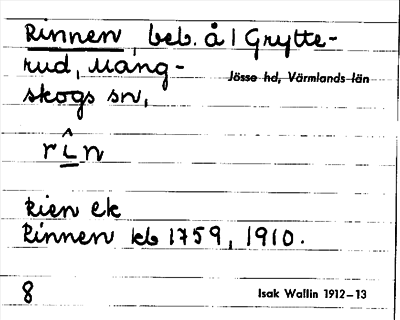 Rinnen, beb. å 1 Grytte-
rud, Mang-
skogs sn,
Jösse hd, Värmlands län
rîn
Rien ek
Rinnen kb 1759, 1910.
8
Isak Wallin 1912–13